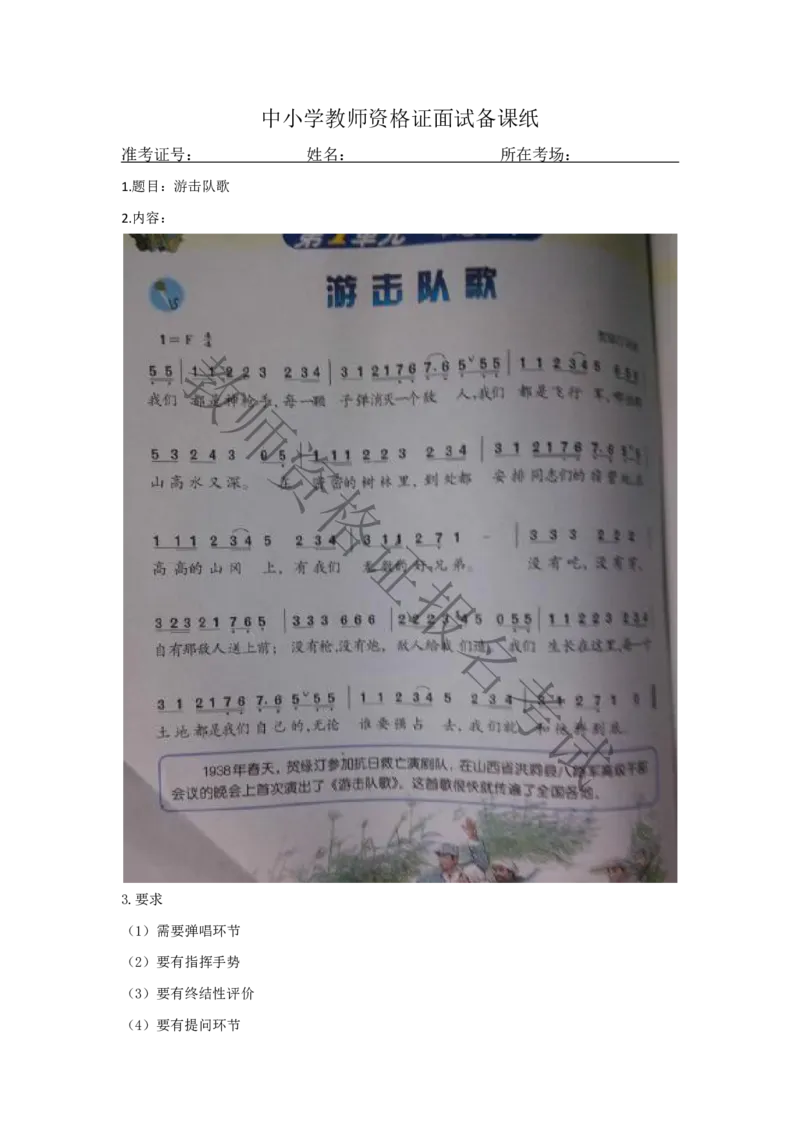 中小学教师资格证面试备课纸
准考证号： 姓名： 所在考场：
1.题目：游击队歌
2.内容：
第1单元
游击队歌
1=F 4/4
5 5 | 1 1 2 2 3 2 3 4 | 3 1 2 1 7 6 7. 6 5 5 5 | 1 1 2 3 4 5
我们 都是神枪手，每一颗 子弹消灭一个敌 人，我们 都是飞行 军，哪怕那
5 3 2 4 3 0 5 | 1 1 1 2 2 3 2 3 4 | 3 1 2 1 7 6 7. 6 5
山高水又深。 在 密密的树林里，到处都 安排同志们的宿营地，在
1 1 1 2 3 4 5 2 3 4 3 1 1 2 7 1 - | 3 3 3 2 2 2
高高的山冈 上，有我们 无数的好兄弟。 没有吃，没有穿，
3 2 3 2 1 7 6 5 | 3 3 3 6 6 6 | 2 2 2 3 4 5 0 5 5 | 1 1 2 2 3 2 3 4
自有那敌人送上前；没有枪，没有炮，敌人给我们造，我们 生长在这里，每一寸
3 1 2 1 7 6 7. 6 5 5 5 | 1 1 2 3 4 5 2 3 4 3 1 2 7 1 0
土地都是我们自己的，无论 谁要强占 去，我们就 和他拼到底。
1938年春天，贺绿汀参加抗日救亡演剧队，在山西省洪洞县八路军高级干部
会议的晚会上首次演出了《游击队歌》。这首歌很快就传遍了全国各地。
教师资格证报名考试
3.要求
（1）需要弹唱环节
（2）要有指挥手势
（3）要有终结性评价
（4）要有提问环节